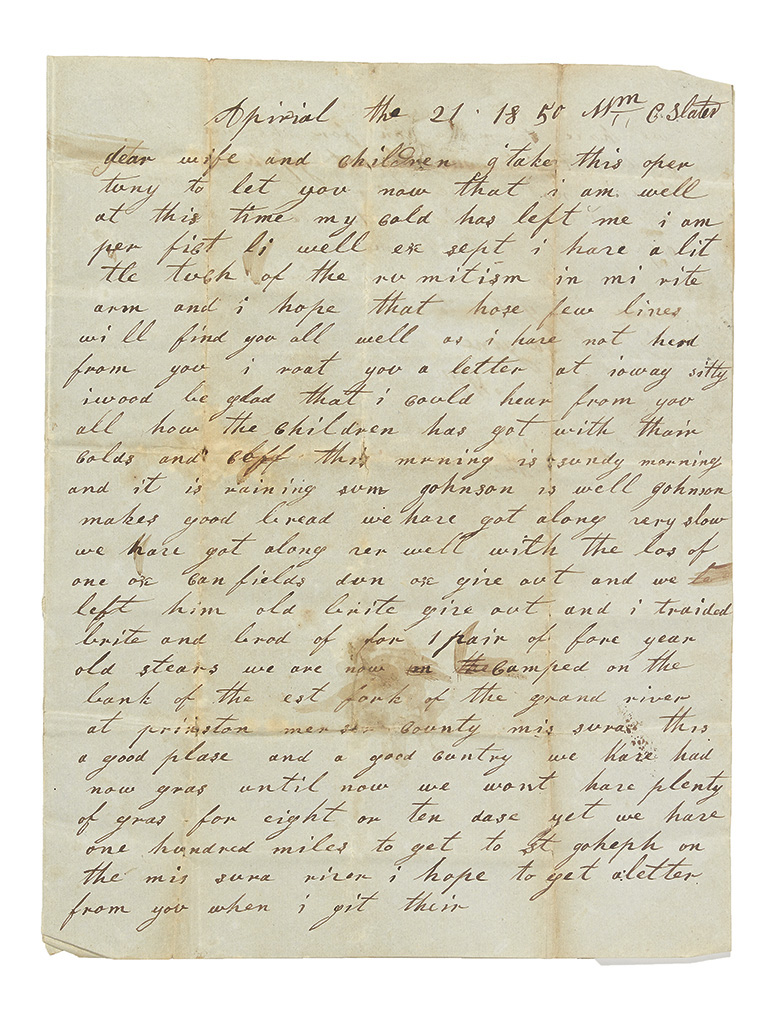 Apirial the 21 · 1850 Wm C Slater
dear wife and children i take this oper
tuny to let you now that i am well
at this time my cold has left me i am
per fict li well ex sept i have a lit
tle tuch of the ru mitism in mi rite
arm and i hope that hose few lines
wi ll find you all well as i have not herd
from you i roat you a letter at ioway sitty
iwood be glad that i could hear from you
all how the children has got with thair
colds and coff this mrning is sundy morning
and it is raining sum Johnson is well Johnson
makes good bread we have got along very slow
we have got along ver well with the los of
one ox canfields dun ox give out and we
left him old brite give out and i traided
brite and brod of for 1 pair of fore year
old stears we are now in the camped on the
bank of the est fork of the grand river
at prinston merser county mis sura this
a good plase and a good cuntry we have had
now gras until now we wont have plenty
of gras for eight or ten dase yet we have
one hundred miles to get to St Joheph on
the mis sura river i hope to get a letter
from you when i git their